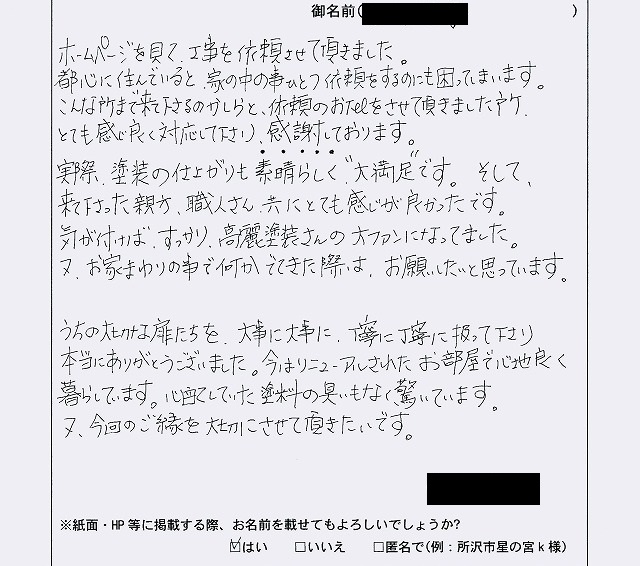 御名前( )
ホームページを見て、工事を依頼させて頂きました。
都心に住んでいると、家の中の事ひとつ依頼をするのにも困ってしまいます。
こんな所まで来て下さるのかしらと、依頼のお電話をさせて頂きましたが、
とても感じ良く対応して下さり、感謝しております。
実際、塗装の仕上がりも素晴らしく、"大満足"です。そして、
来て下さった親方、職人さん、共にとても感じが良かったです。
気が付けば、すっかり、高麗塗装さんの大ファンになってました。
又、お家まわりの事で何かでてきた際は、お願いしたいと思っています。
うちの大切な扉たちを、大事に大事に、丁寧に丁寧に扱って下さり
本当にありがとうございました。今はリニューアルされたお部屋で心地良く
暮らしています。心配していた塗料の臭いもなく驚いています。
又、今回のご縁を大切にさせて頂きたいです。
※紙面・HP等に掲載する際、お名前を載せてもよろしいでしょうか?
☑はい □いいえ □匿名で(例：所沢市星の宮k様)